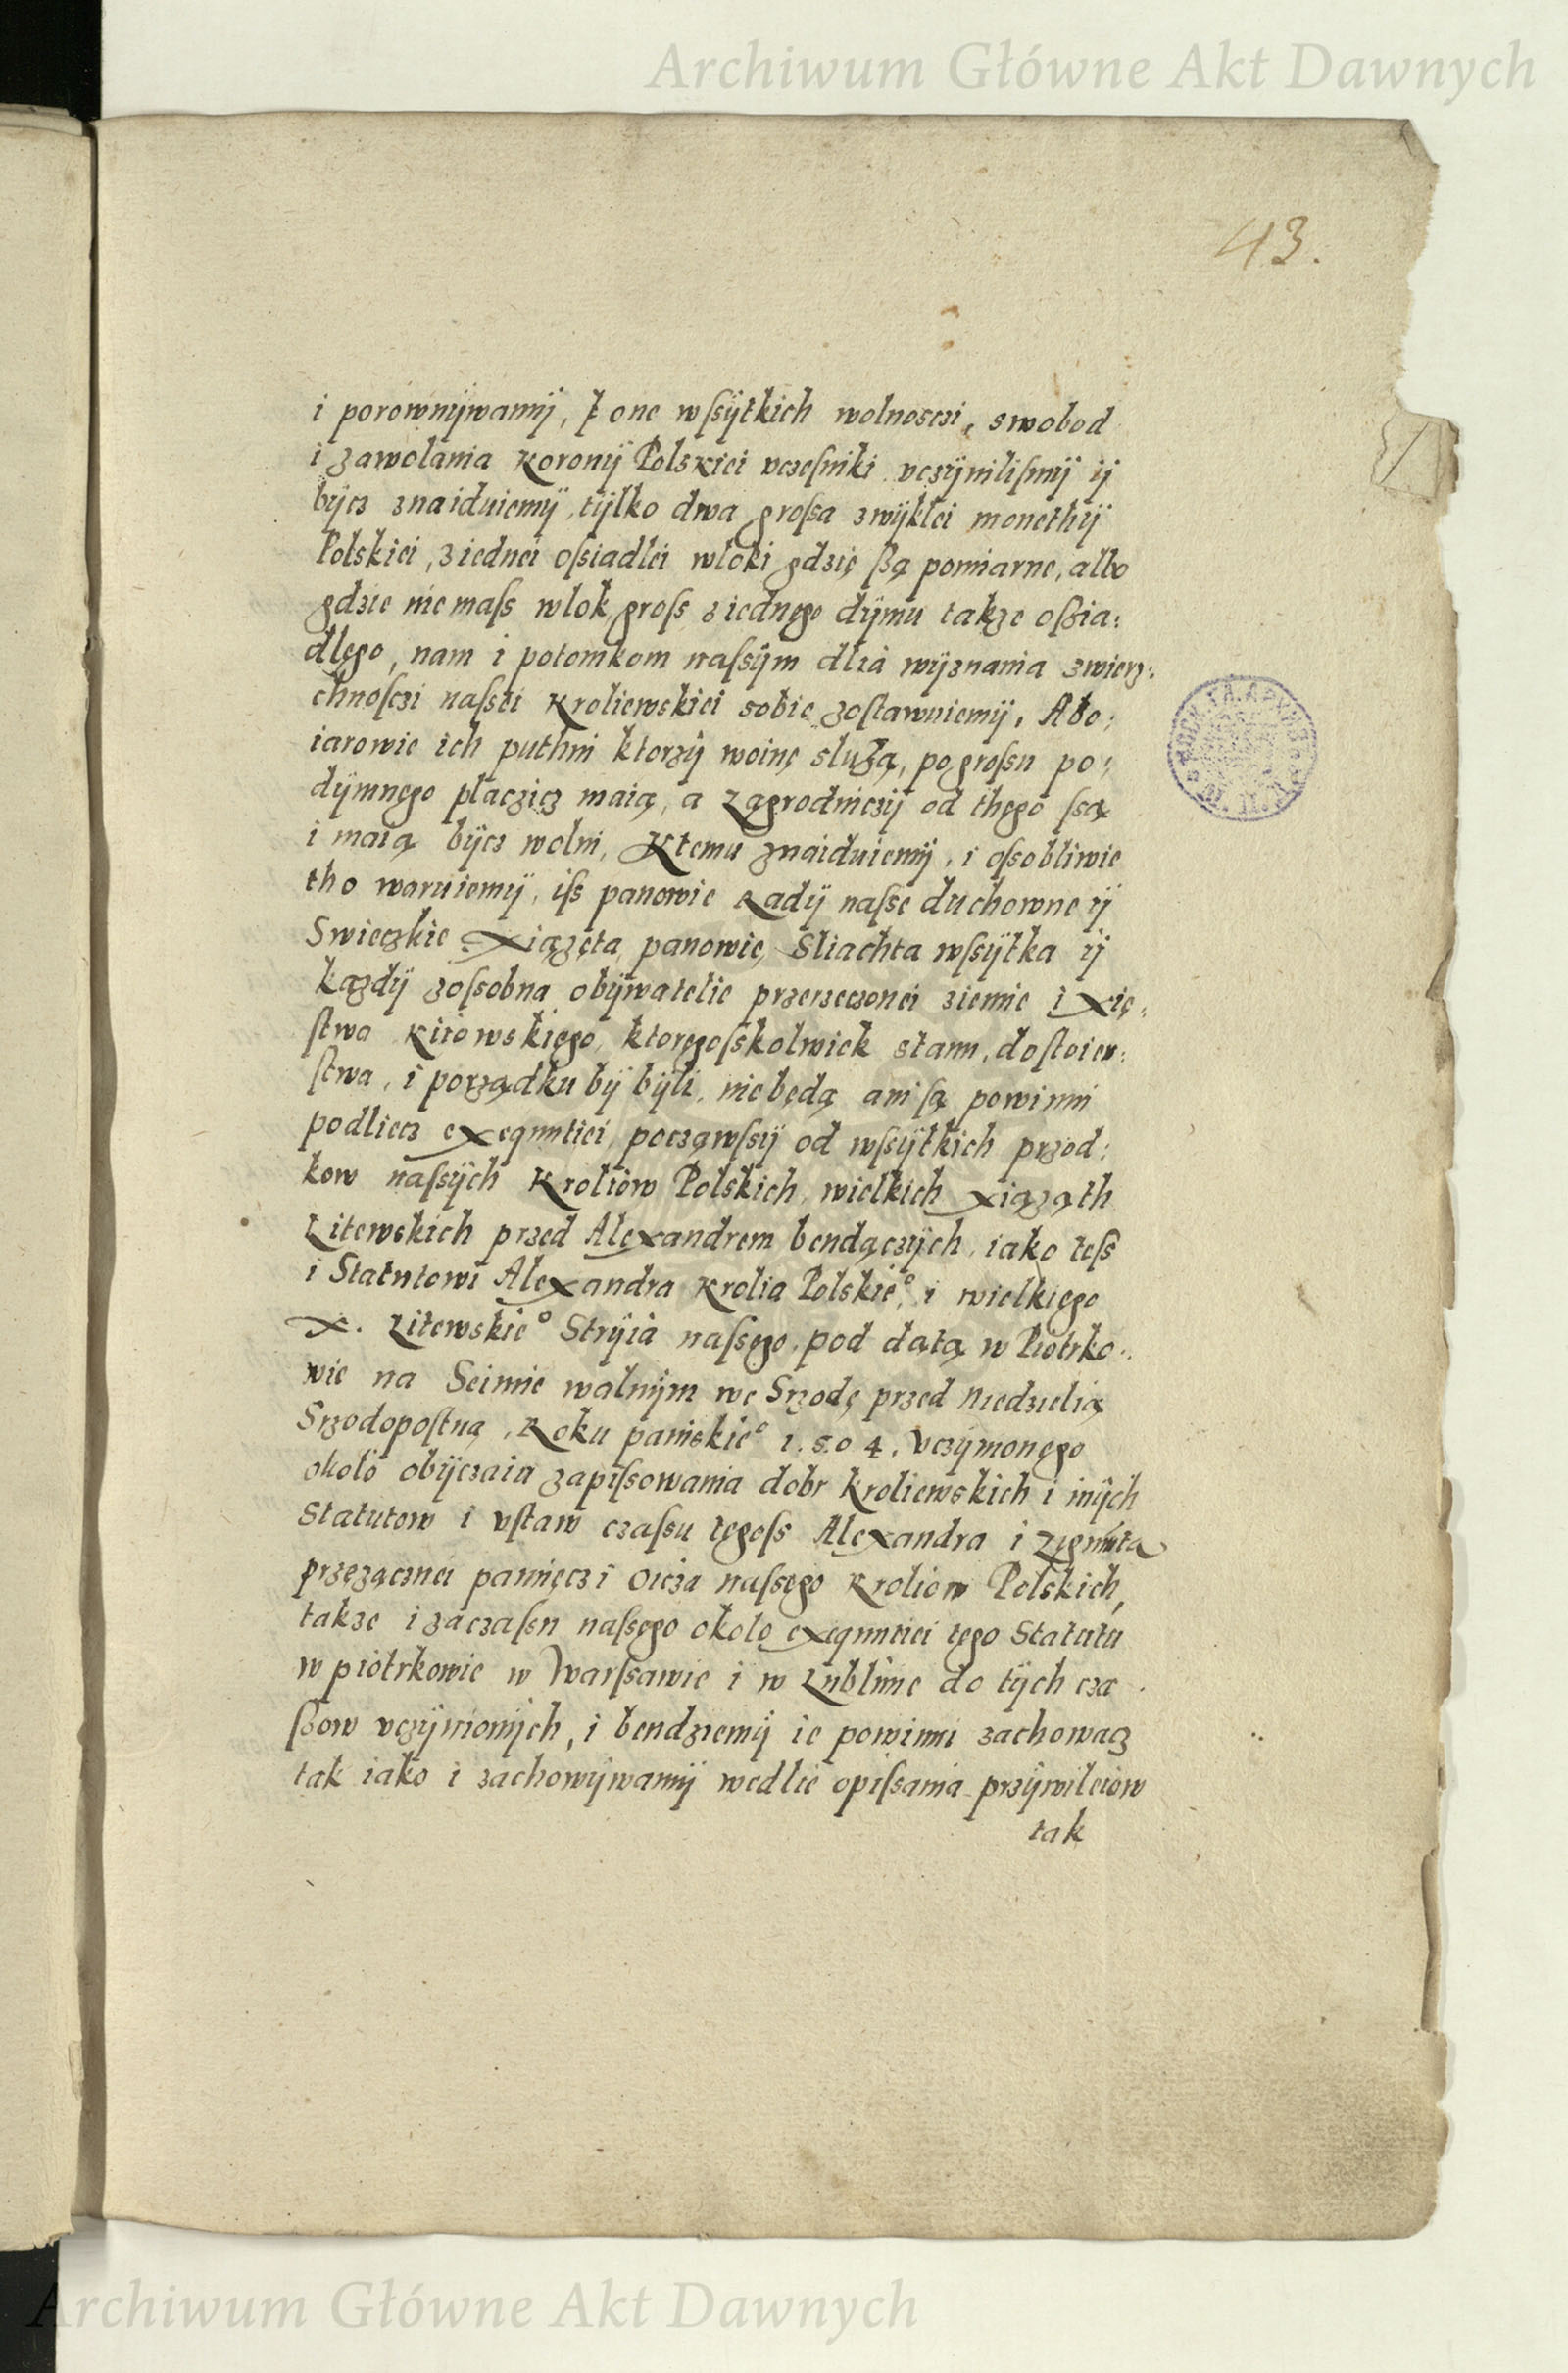 Archiwum Główne Akt Dawnych
43.
i porownÿwamÿ, one wſsÿtkich wolnosczi, swobod
i zawolania Koronÿ Polskiei vczeſniki vczÿniliſmÿ ÿ
bÿcz znaiduiemÿ, tÿlko dwa groſsa zwÿklei monethÿ
Polskiei, z iednei oſiadlei wloki gdzię ſzą pomiarne, albo
gdzie nie maſs wlok, groſs z iednęgo dÿmu takze oſzia:
dlęgo, nam i potomkom naſsÿm dlia wÿznania zwierz:
chnoſczi naſsei Kroliewskiei sobie zoſtawuiemÿ, A bo:
iarowie ich puthni ktorzÿ woinę sluzą, po groſsu po:
dÿmnęgo placzicz maią, a Zągrodniczÿ od thęgo ſsą
i maią bÿcz wolni, Ktemu znaiduiemÿ, i oſsobliwie
tho waruiemÿ, iſs panowie Radÿ naſse duchowne ÿ
Swieczkie Xiązęta, panowie, Sliachta wſsÿtka ÿ
kązdÿ zoſsobna obÿwatelie przerzeczonei ziemie i Xię:
ſtwa Kiiowskięgo, ktoręgoſskolwiek stanu, doſtoien:
ſtwa, i porządku bÿ bÿli, nie będą ani ſą powinni
podliecz exequutiei, począwſsÿ od wſsÿtkich przod:
kow naſsÿch Kroliow Polskich, wielkich xiąząth
Litewskich przed Alexandrem bendączÿch, iako teſs
i Statutowi Alexandra Krolia Polskie°, i wielkięgo
X. Litewskie° Strÿia naſsęgo, pod datą w Piotrko:
wie na Seimie walnÿm we Srzodę przed Niedzielią
Srzodopoſtną, Roku panskie° 1.5.0 4. vczÿnionęgo
okolo obÿczaiu zapiſsowania dobr kroliewskich i inÿch
Statutow i vſtaw czaſsu tęgoſs Alexandra i Zigmta
przęząnei pamięczi oicza naſsęgo Kroliow Polskich,
takze i za czaſsu naſsęgo okolo exequutiei tęgo Statutu
w piotrkowie w Warſsawie i w Lublinie do tÿch cza
ſsow vczÿnionÿch, i bendziemÿ ie powinni zachowacz
tak iako i zachowÿwamÿ wedlie opiſsania przÿwileiow
tak
Archiwum Główne Akt Dawnych